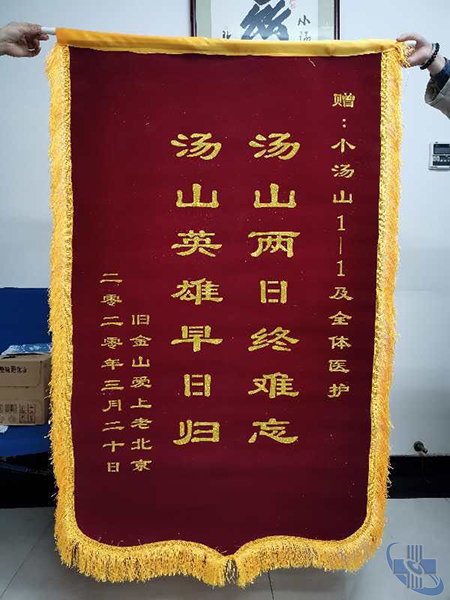 小汤
赠：小汤山1—1及全体医护
汤山两日终难忘
汤山英雄早日归
旧金山爱上老北京
二零二零年三月二十日